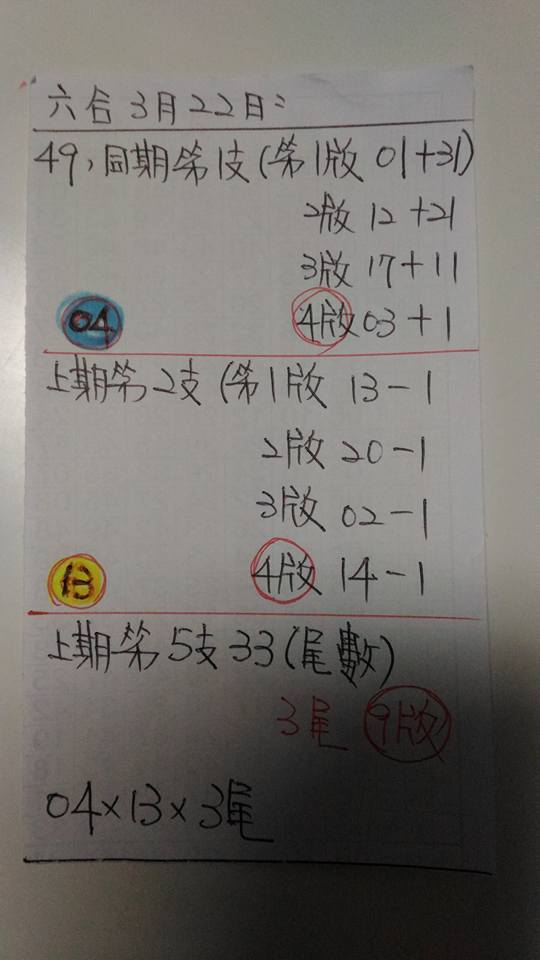 六合 3月22日:
49,同期第1支(第1版 01+31)
2版 12+21
3版 17+11
04 4版 03+1
上期第2支(第1版 13-1
2版 20-1
3版 02-1
13 4版 14-1
上期第5支33(尾數)
3尾 9版
04×13×3尾